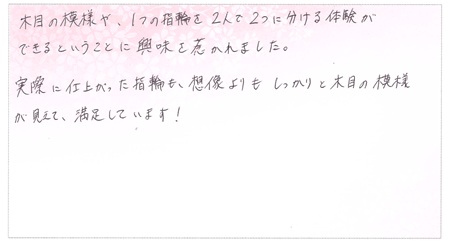 木目の模様や、1つの指輪を2人で2つに分ける体験が
できるということに興味を惹かれました。
実際に仕上がった指輪も、想像よりもしっかりと木目の模様
が見えて、満足しています!